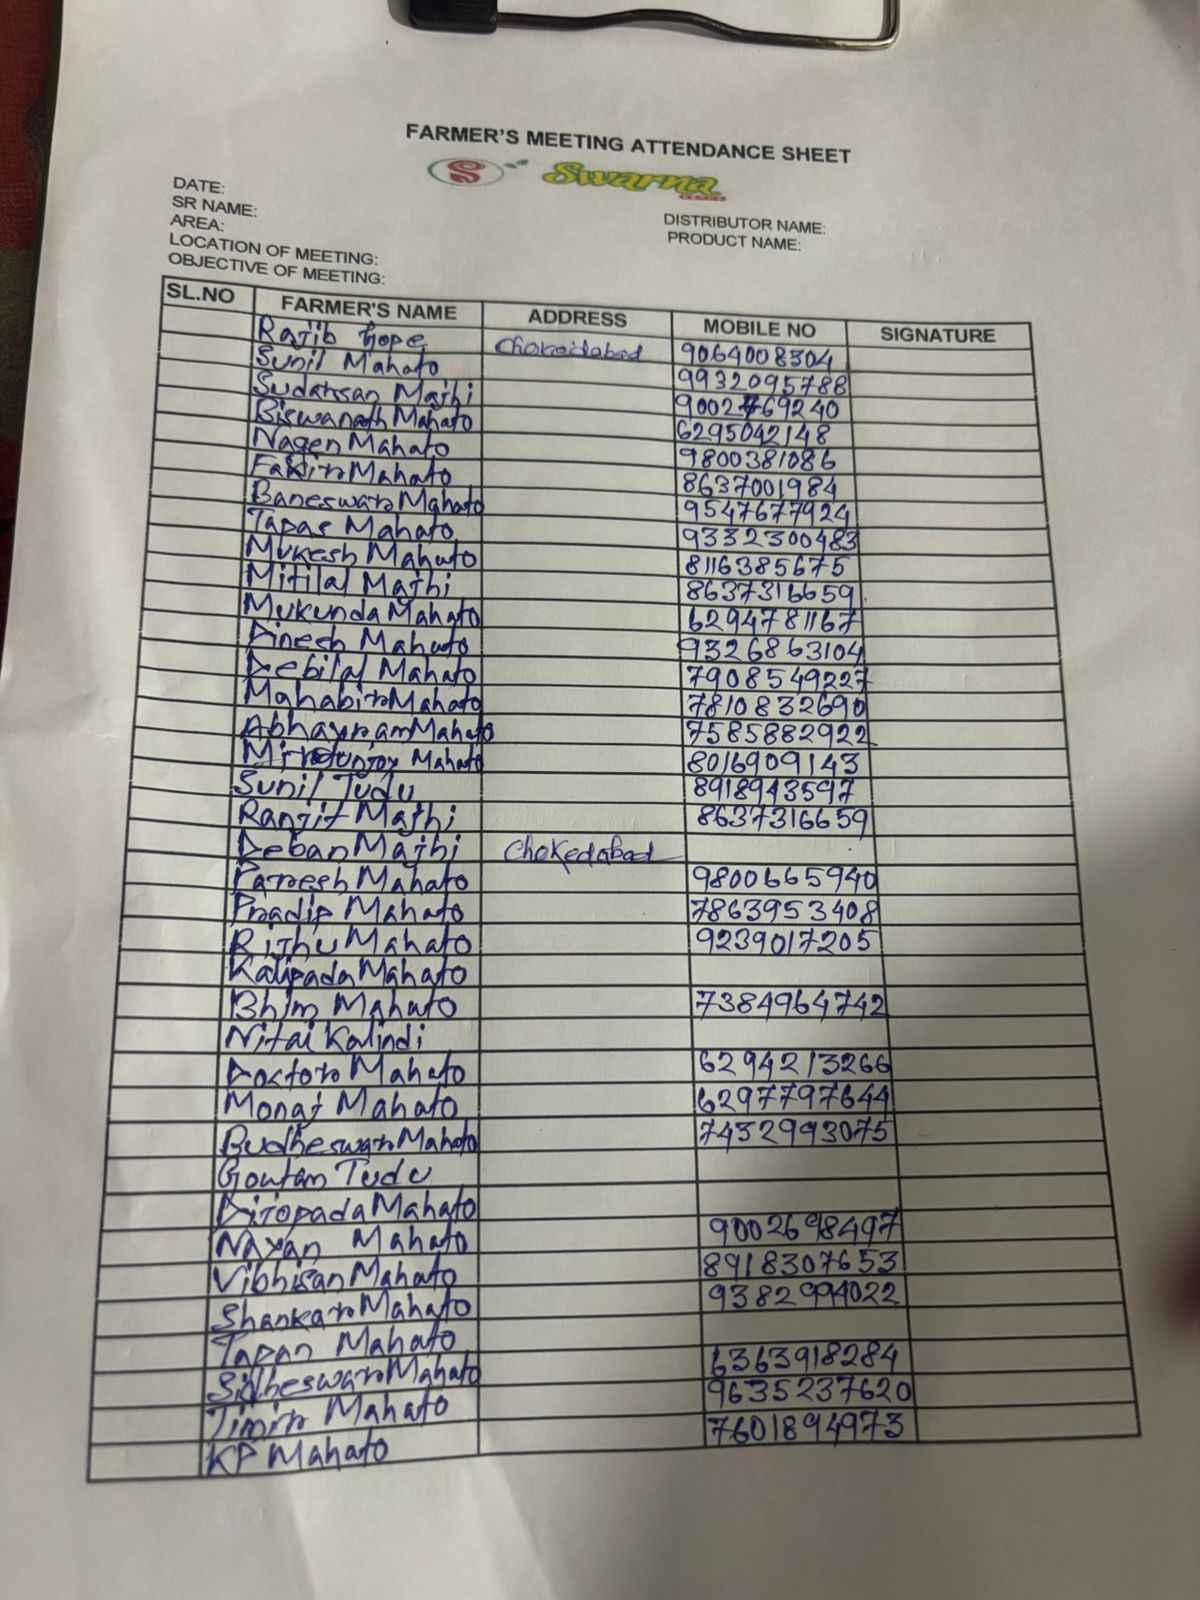 FARMER'S MEETING ATTENDANCE SHEET
S Swarna
DATE:
SR NAME:
AREA:
LOCATION OF MEETING:
OBJECTIVE OF MEETING:
DISTRIBUTOR NAME:
PRODUCT NAME:
SL.NO FARMER'S NAME ADDRESS MOBILE NO SIGNATURE
Rajib Gope Chokeidabad 9064008304
Sunil Mahato 9932095788
Sudarsan Majhi 9002769240
Biswanath Mahato 6295042148
Nagen Mahato 9800381086
Fakir Mahato 8637001984
Baneswar Mahato 9547677924
Tapas Mahato 9332300483
Mukesh Mahato 8116385675
Mitilal Majhi 8637316659
Mukunda Mahato 6294781167
Dinesh Mahato 9326863104
Debilal Mahato 7908549227
Mahabir Mahato 7810832690
Abhayram Mahato 7585882922
Mirtunjoy Mahato 8016909143
Sunil Tudu 8918943597
Ranjit Majhi 8637316659
Deban Majhi Chokedabad
Paresh Mahato 9800665940
Pradip Mahato 7863953408
Rijhu Mahato 9239017205
Kalipada Mahato
Bhim Mahato 7384964742
Nitai Kalindi
Doctor Mahato 6294213266
Monaj Mahato 6297797644
Budheswar Mahato 7432993075
Goutam Tudu
Dijopada Mahato
Nayan Mahato 9002698497
Vibhisan Mahato 8918307653
Shankar Mahato 9382994022
Tapan Mahato
Sidheswar Mahato 6363918284
Timir Mahato 9635237620
KP Mahato 7601894973